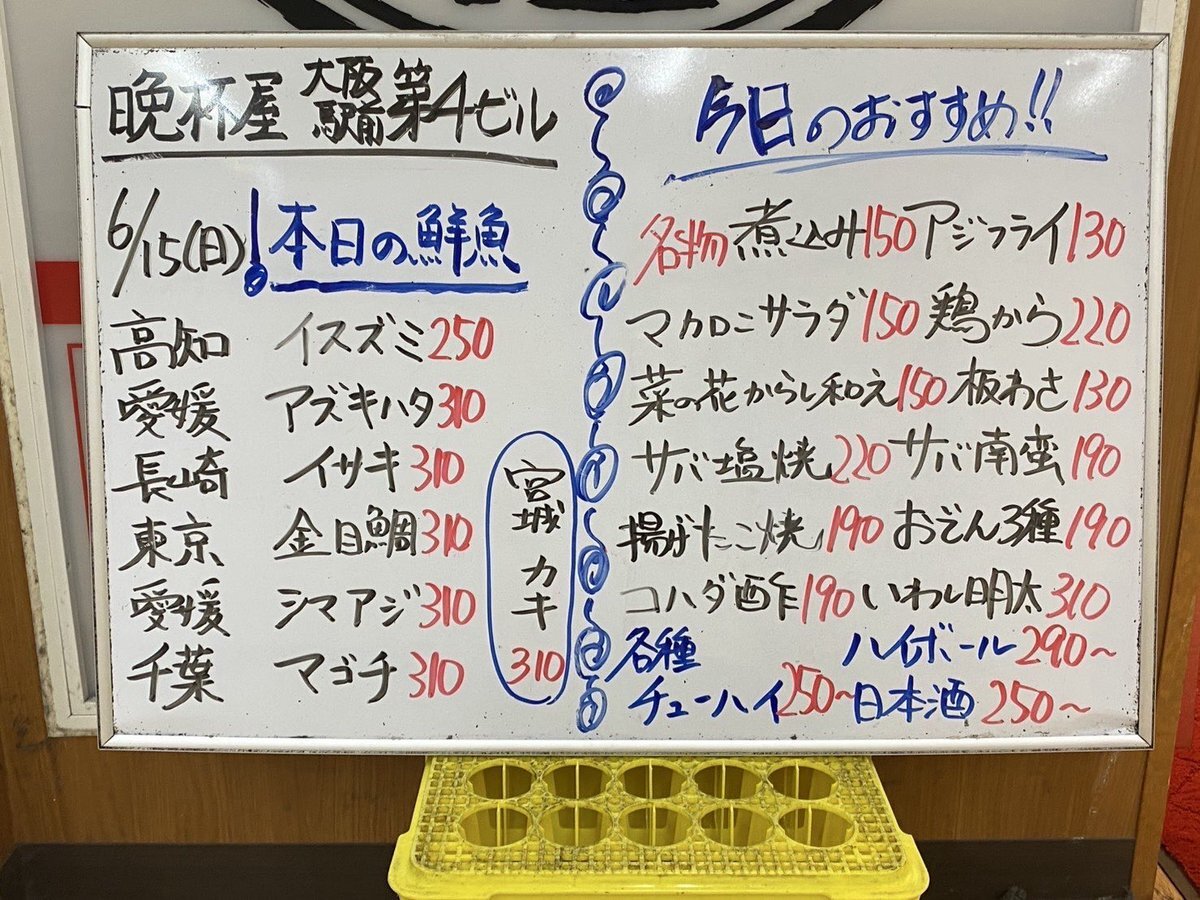 晩杯屋 大阪駅前第4ビル
6/15(日)! 本日の鮮魚
高知 イスズミ 250
愛媛 アズキハタ 310
長崎 イサキ 310
東京 金目鯛 310
愛媛 シマアジ 310
千葉 マゴチ 310
宮城 カキ 310
今日のおすすめ!!
名物 煮込み 150 アジフライ 130
マカロニサラダ 150 鶏から 220
菜の花からし和え 150 板わさ 130
サバ塩焼 220 サバ南蛮 190
揚げたこ焼 190 おでん3種 190
コハダ酢 190 いわし明太 310
各種 ハイボール 290〜
チューハイ 250〜 日本酒 250〜